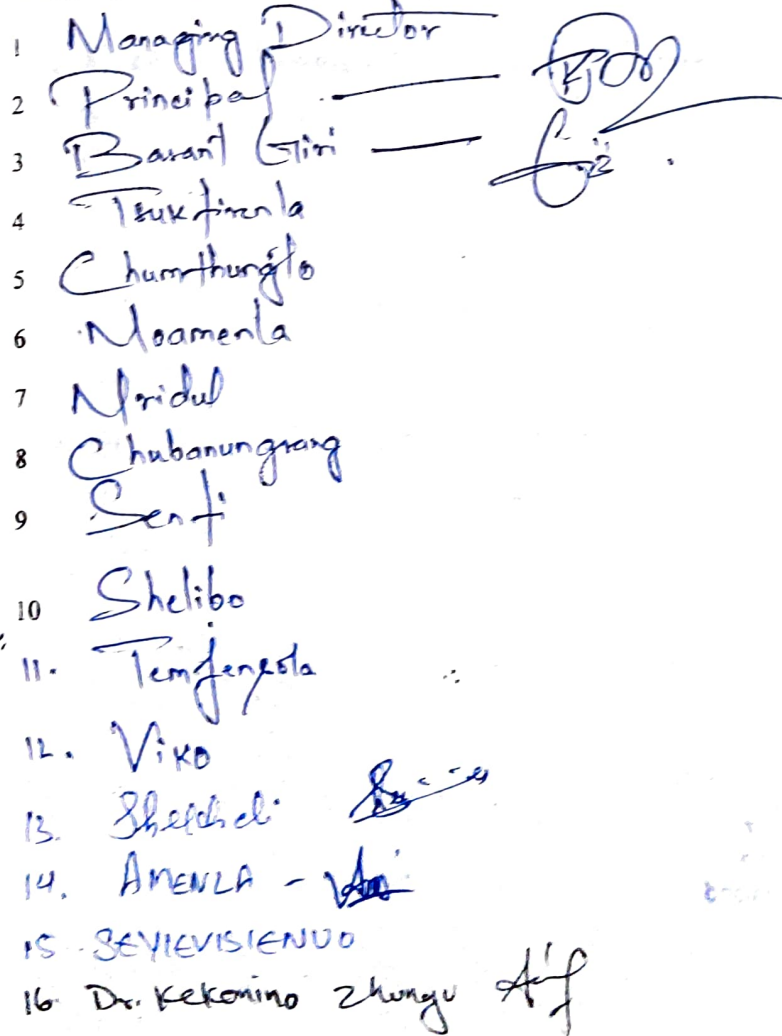 1 Managing Director
2 Principal
3 Basant Giri
4
5 Chumthunglo
6 Moamenla
7 Mridul
8 Chubanungsang
9 Senti
10 Shelibo
11. Temjensola
12. Viko
13.
14. AMENLA -
15 SEYIEVISIENUO
16. Dr. Kekonino Zhungu